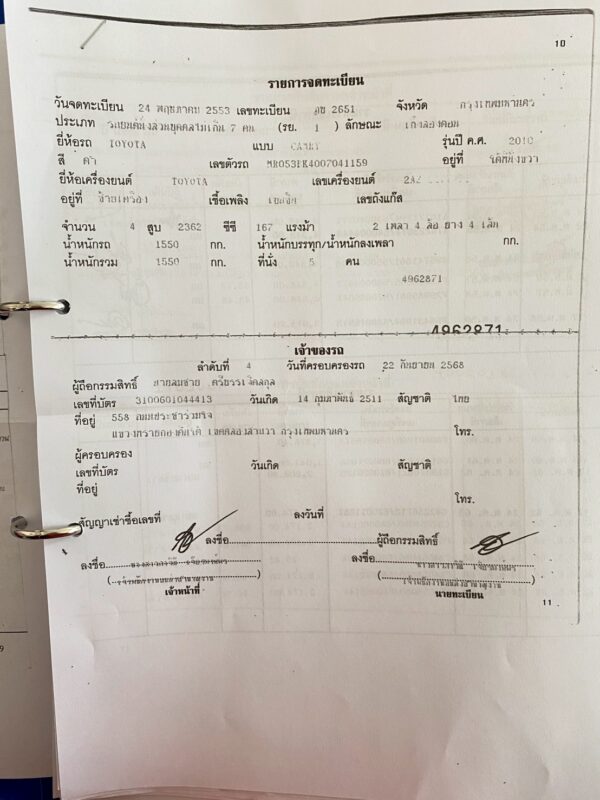 10
รายการจดทะเบียน
วันจดทะเบียน 24 พฤษภาคม 2553 เลขทะเบียน 2651 จังหวัด กรุงเทพมหานคร
ประเภท รถยนต์นั่งส่วนบุคคลไม่เกิน 7 คน (รย. 1 ) ลักษณะ เก๋งสองตอน
ยี่ห้อรถ TOYOTA แบบ CAMRY รุ่นปี ค.ศ. 2010
สี ดำ เลขตัวรถ MR053FK4007041159 อยู่ที่
ยี่ห้อเครื่องยนต์ TOYOTA เลขเครื่องยนต์ 2AZ
อยู่ที่ ซ้ายเครื่อง เชื้อเพลิง เบนซิน เลขถังแก๊ส
จำนวน 4 สูบ 2362 ซีซี 167 แรงม้า 2 เพลา 4 ล้อ ยาง 4 เส้น
น้ำหนักรถ 1550 กก. น้ำหนักบรรทุก/น้ำหนักลงเพลา กก.
น้ำหนักรวม 1550 กก. ที่นั่ง 5 คน
4962871
4962871
เจ้าของรถ
ลำดับที่ 4 วันที่ครอบครองรถ 22 กันยายน 2568
ผู้ถือกรรมสิทธิ์ นายสมชาย
เลขที่บัตร 3100601044413 วันเกิด 14 กุมภาพันธ์ 2511 สัญชาติ ไทย
ที่อยู่ 558 ถนนประชาร่วมใจ
แขวงทรายกองดินใต้ เขตคลองสามวา กรุงเทพมหานคร โทร.
ผู้ครอบครอง
เลขที่บัตร วันเกิด สัญชาติ
ที่อยู่
โทร.
สัญญาเช่าซื้อเลขที่ ลงวันที่
ลงชื่อ ผู้ถือกรรมสิทธิ์
ลงชื่อ ลงชื่อ
เจ้าหน้าที่ นายทะเบียน
11